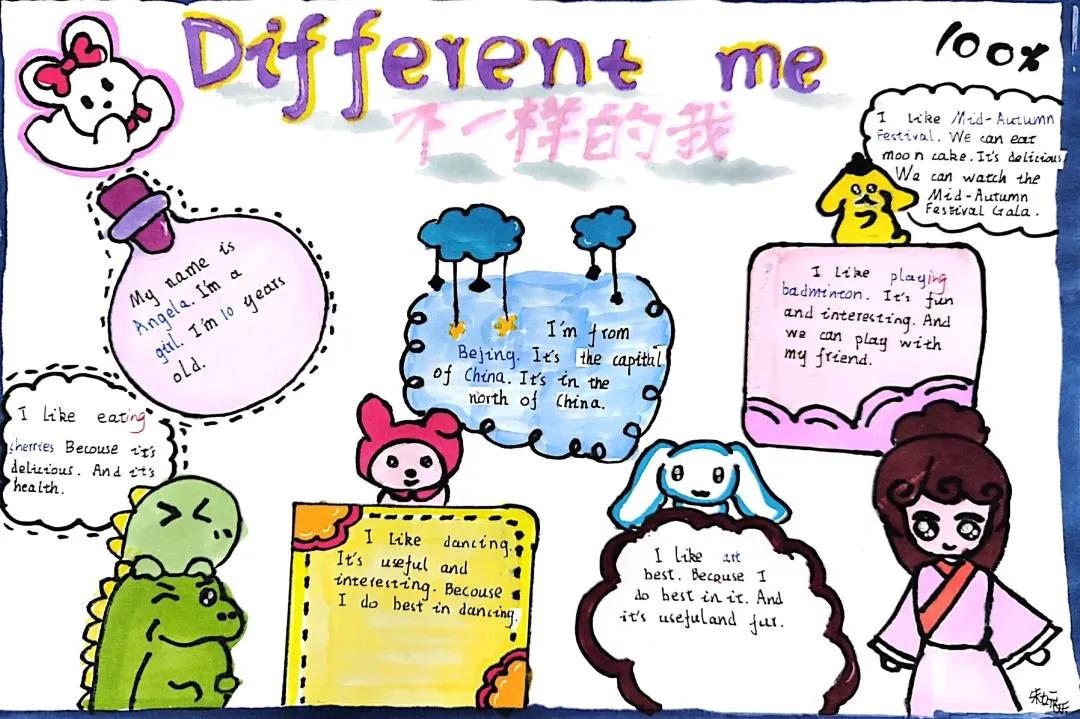 Different me
100%
不一样的我
I like Mid-Autumn
Festival. We can eat
moon cake. It's delicious
We can watch the
Mid-Autumn
Festival Gala.
My name is
Angela. I'm a
girl. I'm 10 years
old.
I'm from
Bejing. It's the capital
of China. It's in the
north of China.
I like playing
badminton. It's fun
and interesting. And
we can play with
my friend.
I like eating
cherries Becouse it's
delicious. And it's
health.
I like dancing.
It's useful and
interesting. Becouse
I do best in dancing.
I like art
best. Because I
do best in it. And
it's useful and fur.